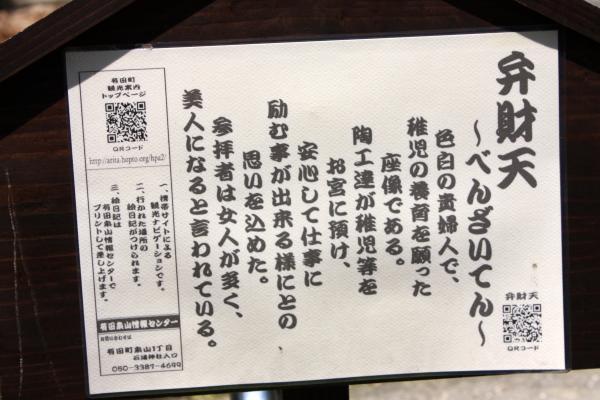 弁財天
～べんざいてん～
色白の貴婦人で、
稚児の養育を願った
座像である。
陶工達が稚児等を
お宮に預け、
安心して仕事に
励む事が出来る様にとの
思いを込めた。
参拝者は女人が多く、
美人になると言われている。
弁財天
QRコード
有田町
観光案内
トップページ
QRコード
http://arita.hapto.org/hpa2/
一、携帯サイトによる
観光ナビゲーションです。
二、行かれた場所の
絵日記がつけられます。
三、絵日記は
有田泉山情報センターで
プリントして差し上げます。
有田泉山情報センター
お問い合わせは
有田町泉山1丁目
石場神社入口
050-3387-4699